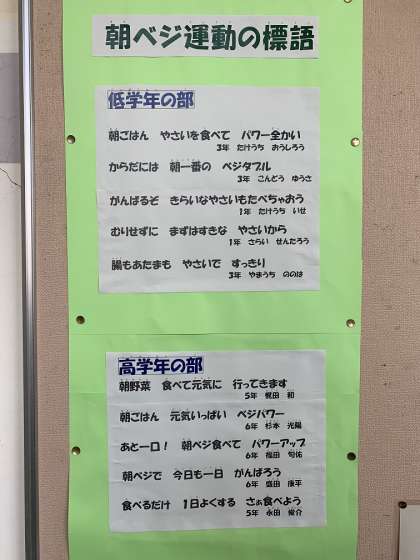 朝ベジ運動の標語
低学年の部
朝ごはん やさいを食べて パワー全かい
3年 たけうち おうしろう
からだには 朝一番の ベジタブル
3年 こんどう ゆうさ
がんばるぞ きらいなやさいもたべちゃおう
1年 たけうち いせ
むりせずに まずはすきな やさいから
1年 さらい せんたろう
腸もあたまも やさいで すっきり
3年 やまうち ののは
高学年の部
朝野菜 食べて元気に 行ってきます
5年 梶田 和
朝ごはん 元気いっぱい ベジパワー
6年 杉本 光陽
あと一口! 朝ベジ食べて パワーアップ
6年 福田 旬佑
朝ベジで 今日も一日 がんばろう
6年 盛田 康平
食べるだけ 1日よくする さぁ食べよう
5年 永田 修介